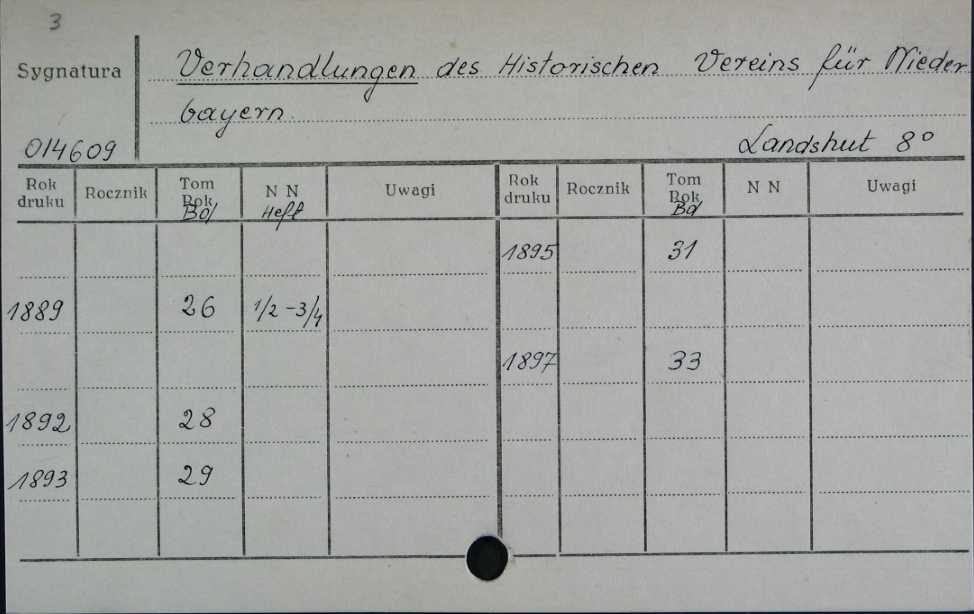 3
Sygnatura
Verhandlungen des Historischen Vereins für Nieder
bayern.
014609
Landshut 8°
Rok druku Rocznik Tom Rok Bd/ N N Heft Uwagi Rok druku Rocznik Tom Rok Bd N N Uwagi
1895 31
1889 26 1/2-3/4
1897 33
1892 28
1893 29